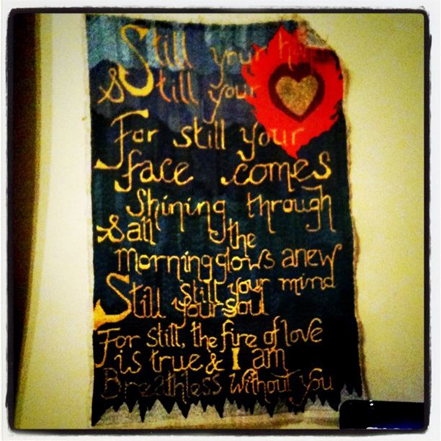 Still your
& Still your
For still your
face comes
Shining through
& all the
Morning glows anew
Still still your mind
Still your soul
For still, the fire of love
is true & I am
Breathless without you